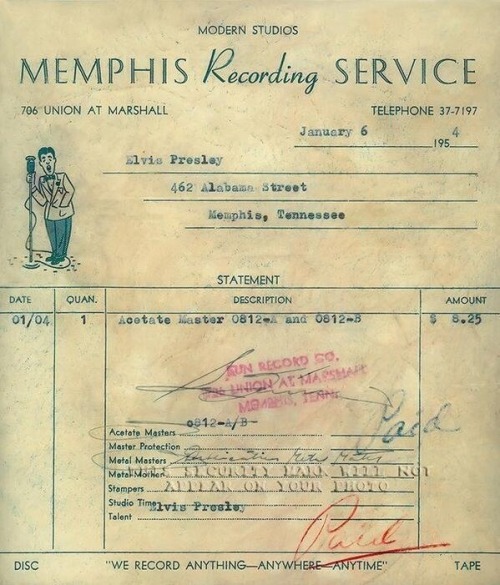 MODERN STUDIOS
MEMPHIS Recording SERVICE
706 UNION AT MARSHALL TELEPHONE 37-7197
January 6 1954
Elvis Presley
462 Alabama Street
Memphis, Tennessee
STATEMENT
DATE QUAN. DESCRIPTION AMOUNT
01/04 1 Acetate Master 0812-A and 0812-B $ 8.25
SUN RECORD CO.
706 UNION AT MARSHALL
MEMPHIS, TENN.
0812-A/B
Paid
Acetate Masters
Master Protection
Metal Masters
Metal Mother
THIS SECURITY MARK WILL NOT
Stampers
APPEAR ON YOUR PHOTO
Studio Time
Elvis Presley
Talent
Paid
DISC "WE RECORD ANYTHING—ANYWHERE—ANYTIME" TAPE